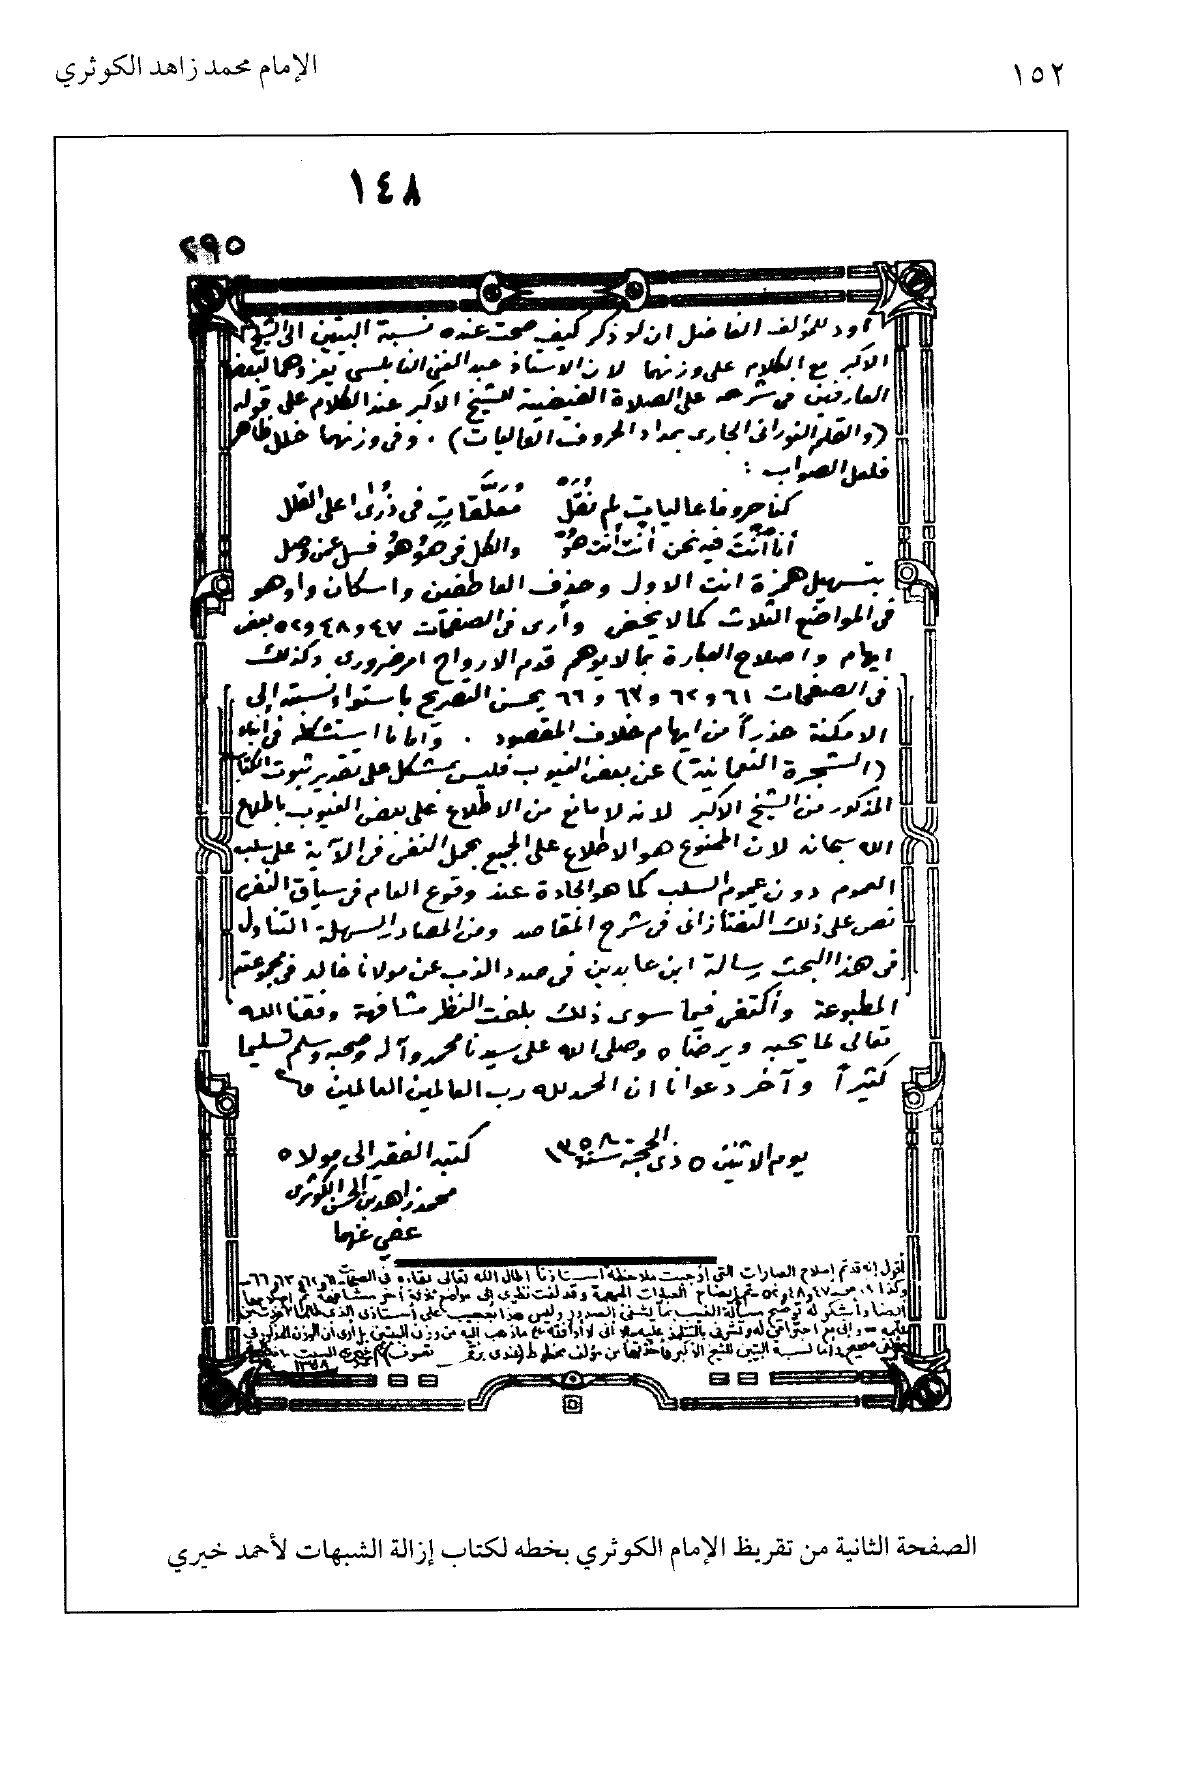 ١٥٢
الإمام محمد زاهد الكوثري
١٤٨
٢٩٥
اود للمؤلف الفاضل ان لو ذكر كيف صحت عنده نسبة البيتين الى الشيخ
الاكبر مع الكلام على وزنهما لان الاستاذ عبد الغنى النابلسى يعزوهما لبعض
العارفين فى شرحه على الصلاة الفيضية للشيخ الاكبر عند الكلام على قوله
(والقلم النورانى الجارى بمداد الحروف العاليات) . وفى وزنهما خلل ظاهر
فلعل الصواب :
كنا حروفا عاليات لم نقل متعلقات فى ذرى اعلى القلل
أنا انت فيه نحن انت أنت هو والكل فى هو هو فسل عمن وصل
بتسهيل همزة انت الاول وحذف العاطفين واسكان واو هو
فى المواضع الثلاث كما لا يخفى وأرى فى الصفحات ٤٧ و٤٨ و٥٢ بعض
ايهام واصلاح العبارة بما لا يوهم قدم الارواح امر ضرورى وكذلك
فى الصفحات ٦١ و٦٢ و٦٣ و٦٦ يحسن التصريح باستواء نسبته إلى
الامكنة حذراً من ايهام خلاف المقصود . واما ما استشكله فى انباء
(الشجرة النعمانية) عن بعض الغيوب فليس بمشكل على تقدير ثبوت الكتاب
المذكور من الشيخ الاكبر لانه لا مانع من الاطلاع على بعض الغيوب باطلاع
الله سبحانه لان الممنوع هو الاطلاع على الجميع بحمل النفى فى الآية على سلب
العموم دون عموم السلب كما هو الجادة عند وقوع العام فى سياق النفى
نص على ذلك التفتازانى فى شرح المقاصد ومن المصادر السهلة التناول
فى هذا البحث رسالة ابن عابدين فى صدد الذب عن مولانا خالد فى مجموعته
المطبوعة وأكتفى فيما سوى ذلك بلفت النظر مشافهة وفقنا الله
تعالى لما يحبه ويرضاه وصلى الله على سيدنا محمد وآله وصحبه وسلم تسليما
كثيراً وآخر دعوانا ان الحمد لله رب العالمين العالمين
يوم الاثنين ٥ ذى الحجة سنة ١٣٥٨
كتبه الفقير الى مولاه
محمد زاهد بن الحسن الكوثرى
عفى عنهما
أقول إنه قد تم إصلاح العبارات التى أوجبت ملاحظة أستاذنا اطال الله تعالى بقاءه فى الصفحات ٦١ و٦٢ و٦٣ و٦٦
وكذا ٤٧ و٤٨ و٥٢ تم إيضاح العبارات المبهمة وقد لفت نظرى إلى مواضع مشافهة تم إصلاحها
أيضا وأشكر له توضيح مسألة الغيب بما يشفى الصدور وليس هذا بعجيب على أستاذى الذى
وإنى مع احترامى له وتشرفى بالتلمذ عليه إلا أنى لا أوافقه على ما ذهب إليه من وزن البيتين بل أرى أن الوزن المذكور فى
صحيح وأما نسبة البيتين للشيخ الأكبر من مؤلف مخطوط
١٣٥٨
الصفحة الثانية من تقريظ الإمام الكوثري بخطه لكتاب إزالة الشبهات لأحمد خيري